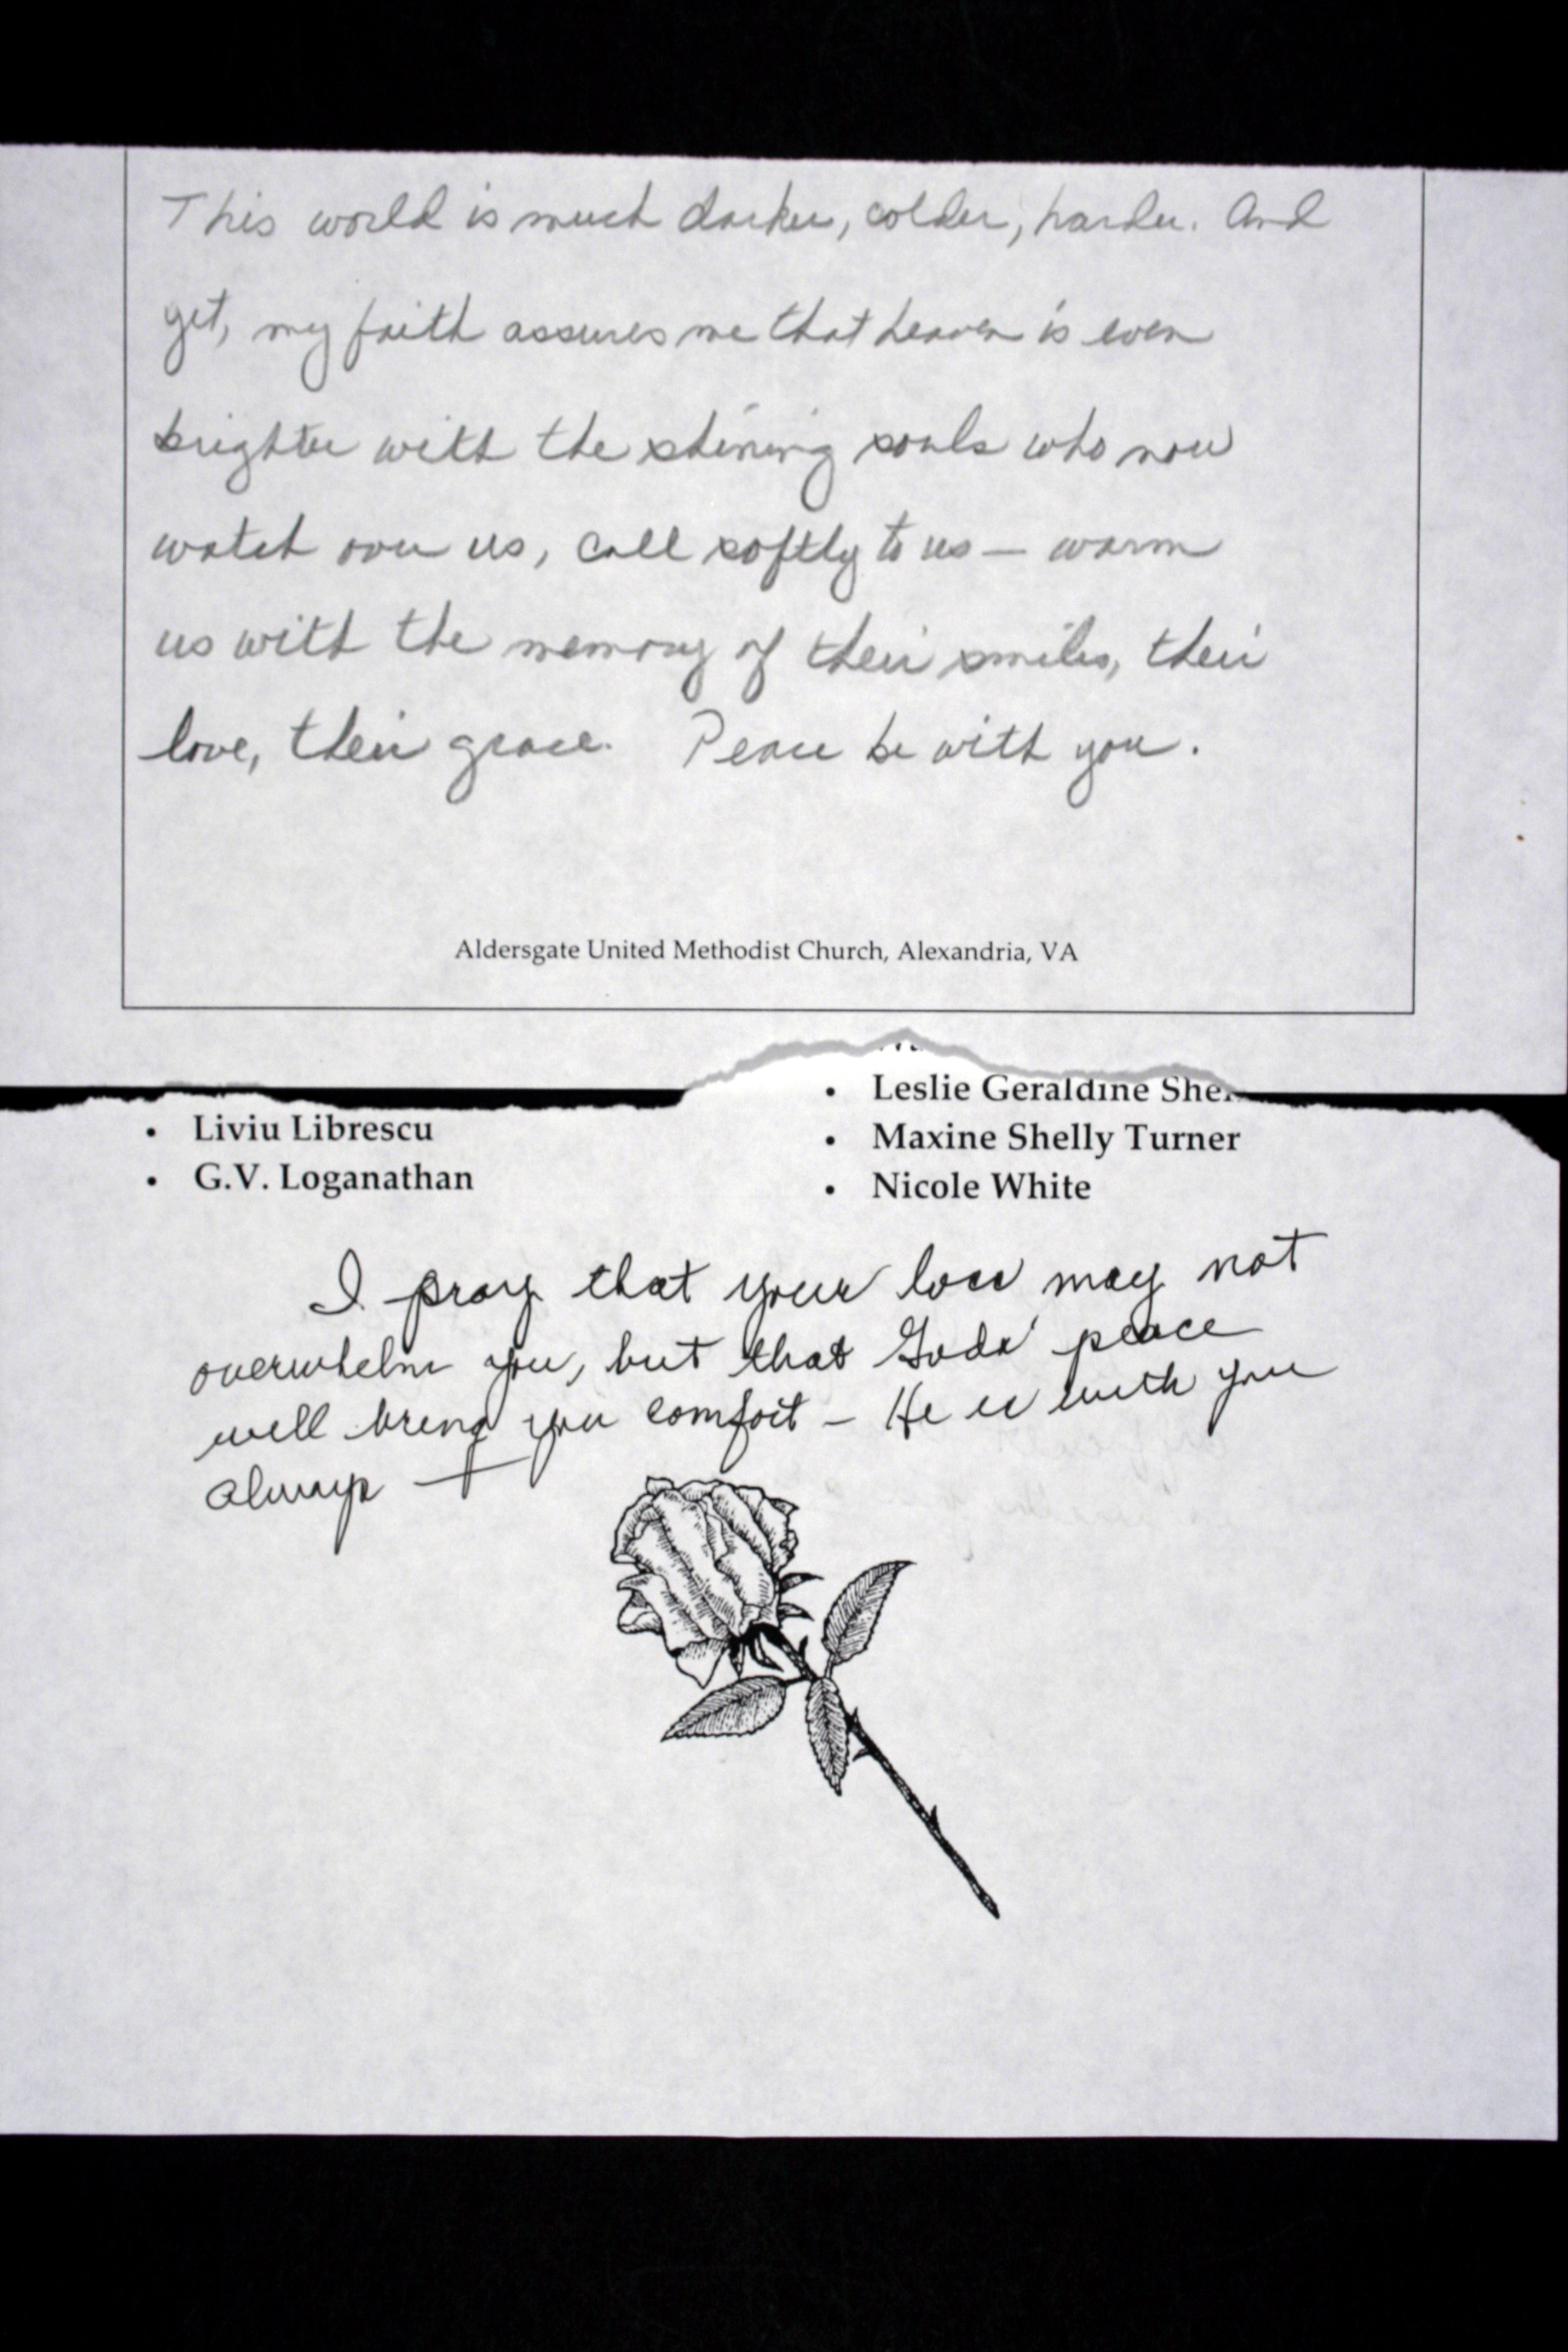 This world is much darker, colder, harder. And
yet, my faith assures me that heaven is even
brighter with the shining souls who now
watch over us, call softly to us — warm
us with the memory of their smiles, their
love, their grace. Peace be with you.
Aldersgate United Methodist Church, Alexandria, VA
• Liviu Librescu
• G.V. Loganathan
• Leslie Geraldine She
• Maxine Shelly Turner
• Nicole White
I pray that your loss may not
overwhelm you, but that Gods' peace
will bring you comfort – He is with you
always